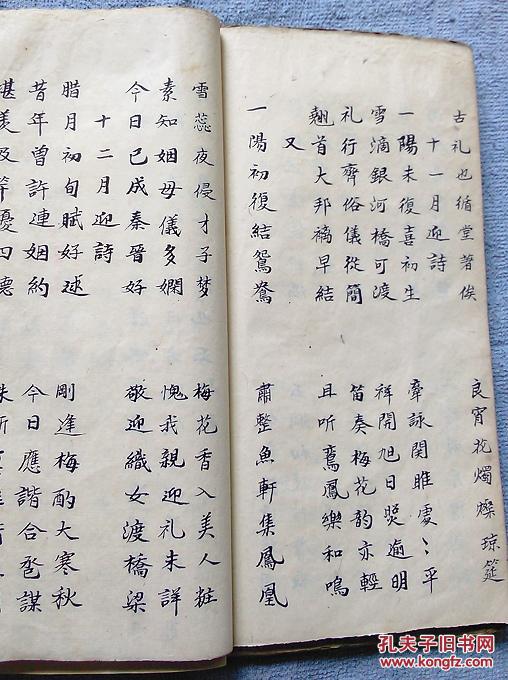 古礼也循堂著俟 良宵花燭燦琼筵
十一月迎詩
一陽未復喜初生 牽詠関雎處〻平
雪滴銀河橋可渡 祥開旭日煚逾明
礼行齊俗儀從簡 笛奏梅花韵亦輕
翹首大邦褵早結 且听鸞鳳樂和鳴
又
一陽初復結鴛鴦 肅整魚軒集鳳凰
雪蕊夜侵才子梦 梅花香入美人粧
素知姻母儀多嫻 愧我親迎礼未詳
今日已成秦晉好 敬迎織女渡橋梁
十二月迎詩
腊月初旬賦好逑 剛逢梅酌大寒秋
昔年曾許連姻約 今日應諧合卺謀
四德
孔夫子旧书网
www.kongfz.com